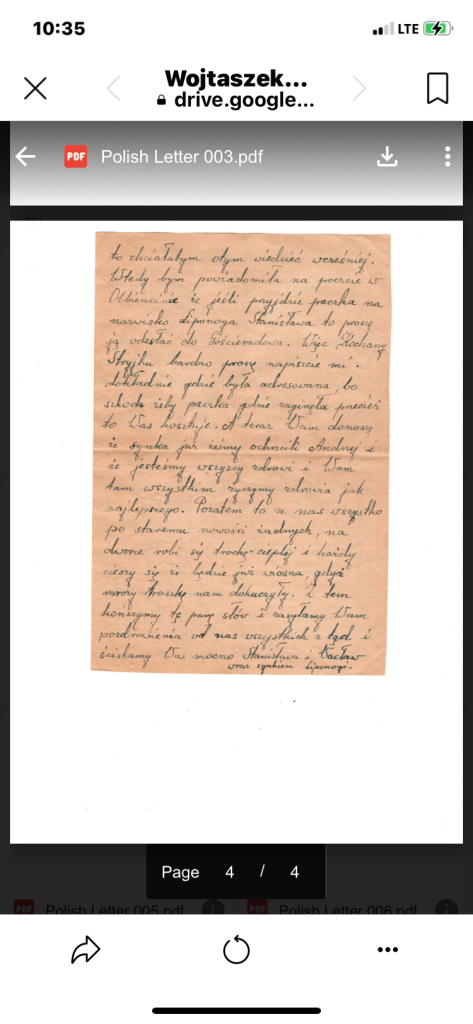 10:35
LTE
Wojtaszek...
drive.google...
PDF Polish Letter 003.pdf
to chciałabym otym wiedzieć wcześniej.
Wtedy bym powiadomiła na poczcie w
Olbiencinie że jeśli przyjdzie paczka na
nazwisko Liponoga Stanisława to proszę
ją odesłać do Gościeradowa. Więc Kochany
Stryjku bardzo proszę napiszcie mi
dokładnie gdzie była adresowana, bo
szkoda żeby paczka gdzie zaginęła przecież
to Was kosztuje. A teraz Wam donoszę
że synka już żeśmy ochrzcili Andrzej i
że jesteśmy wszyscy zdrowi i Wam
tam wszystkim życzymy zdrowia jak
najlepszego. Pozatem to u nas wszystko
po staremu nowości żadnych, na
dworze robi się trochę cieplej i każdy
cieszy się że będzie już wiosna, gdyż
mrozy troszkę nam dokuczyły. i tem
kończymy tę parę słów i zasyłamy Wam
pozdrowienia od nas wszystkich z tąd i
ściskamy Was mocno Stanisława i Wacław
wraz synkiem Liponogi.
Page 4 / 4
PDF Polish Letter 005.pdf PDF Polish Letter 006.pdf